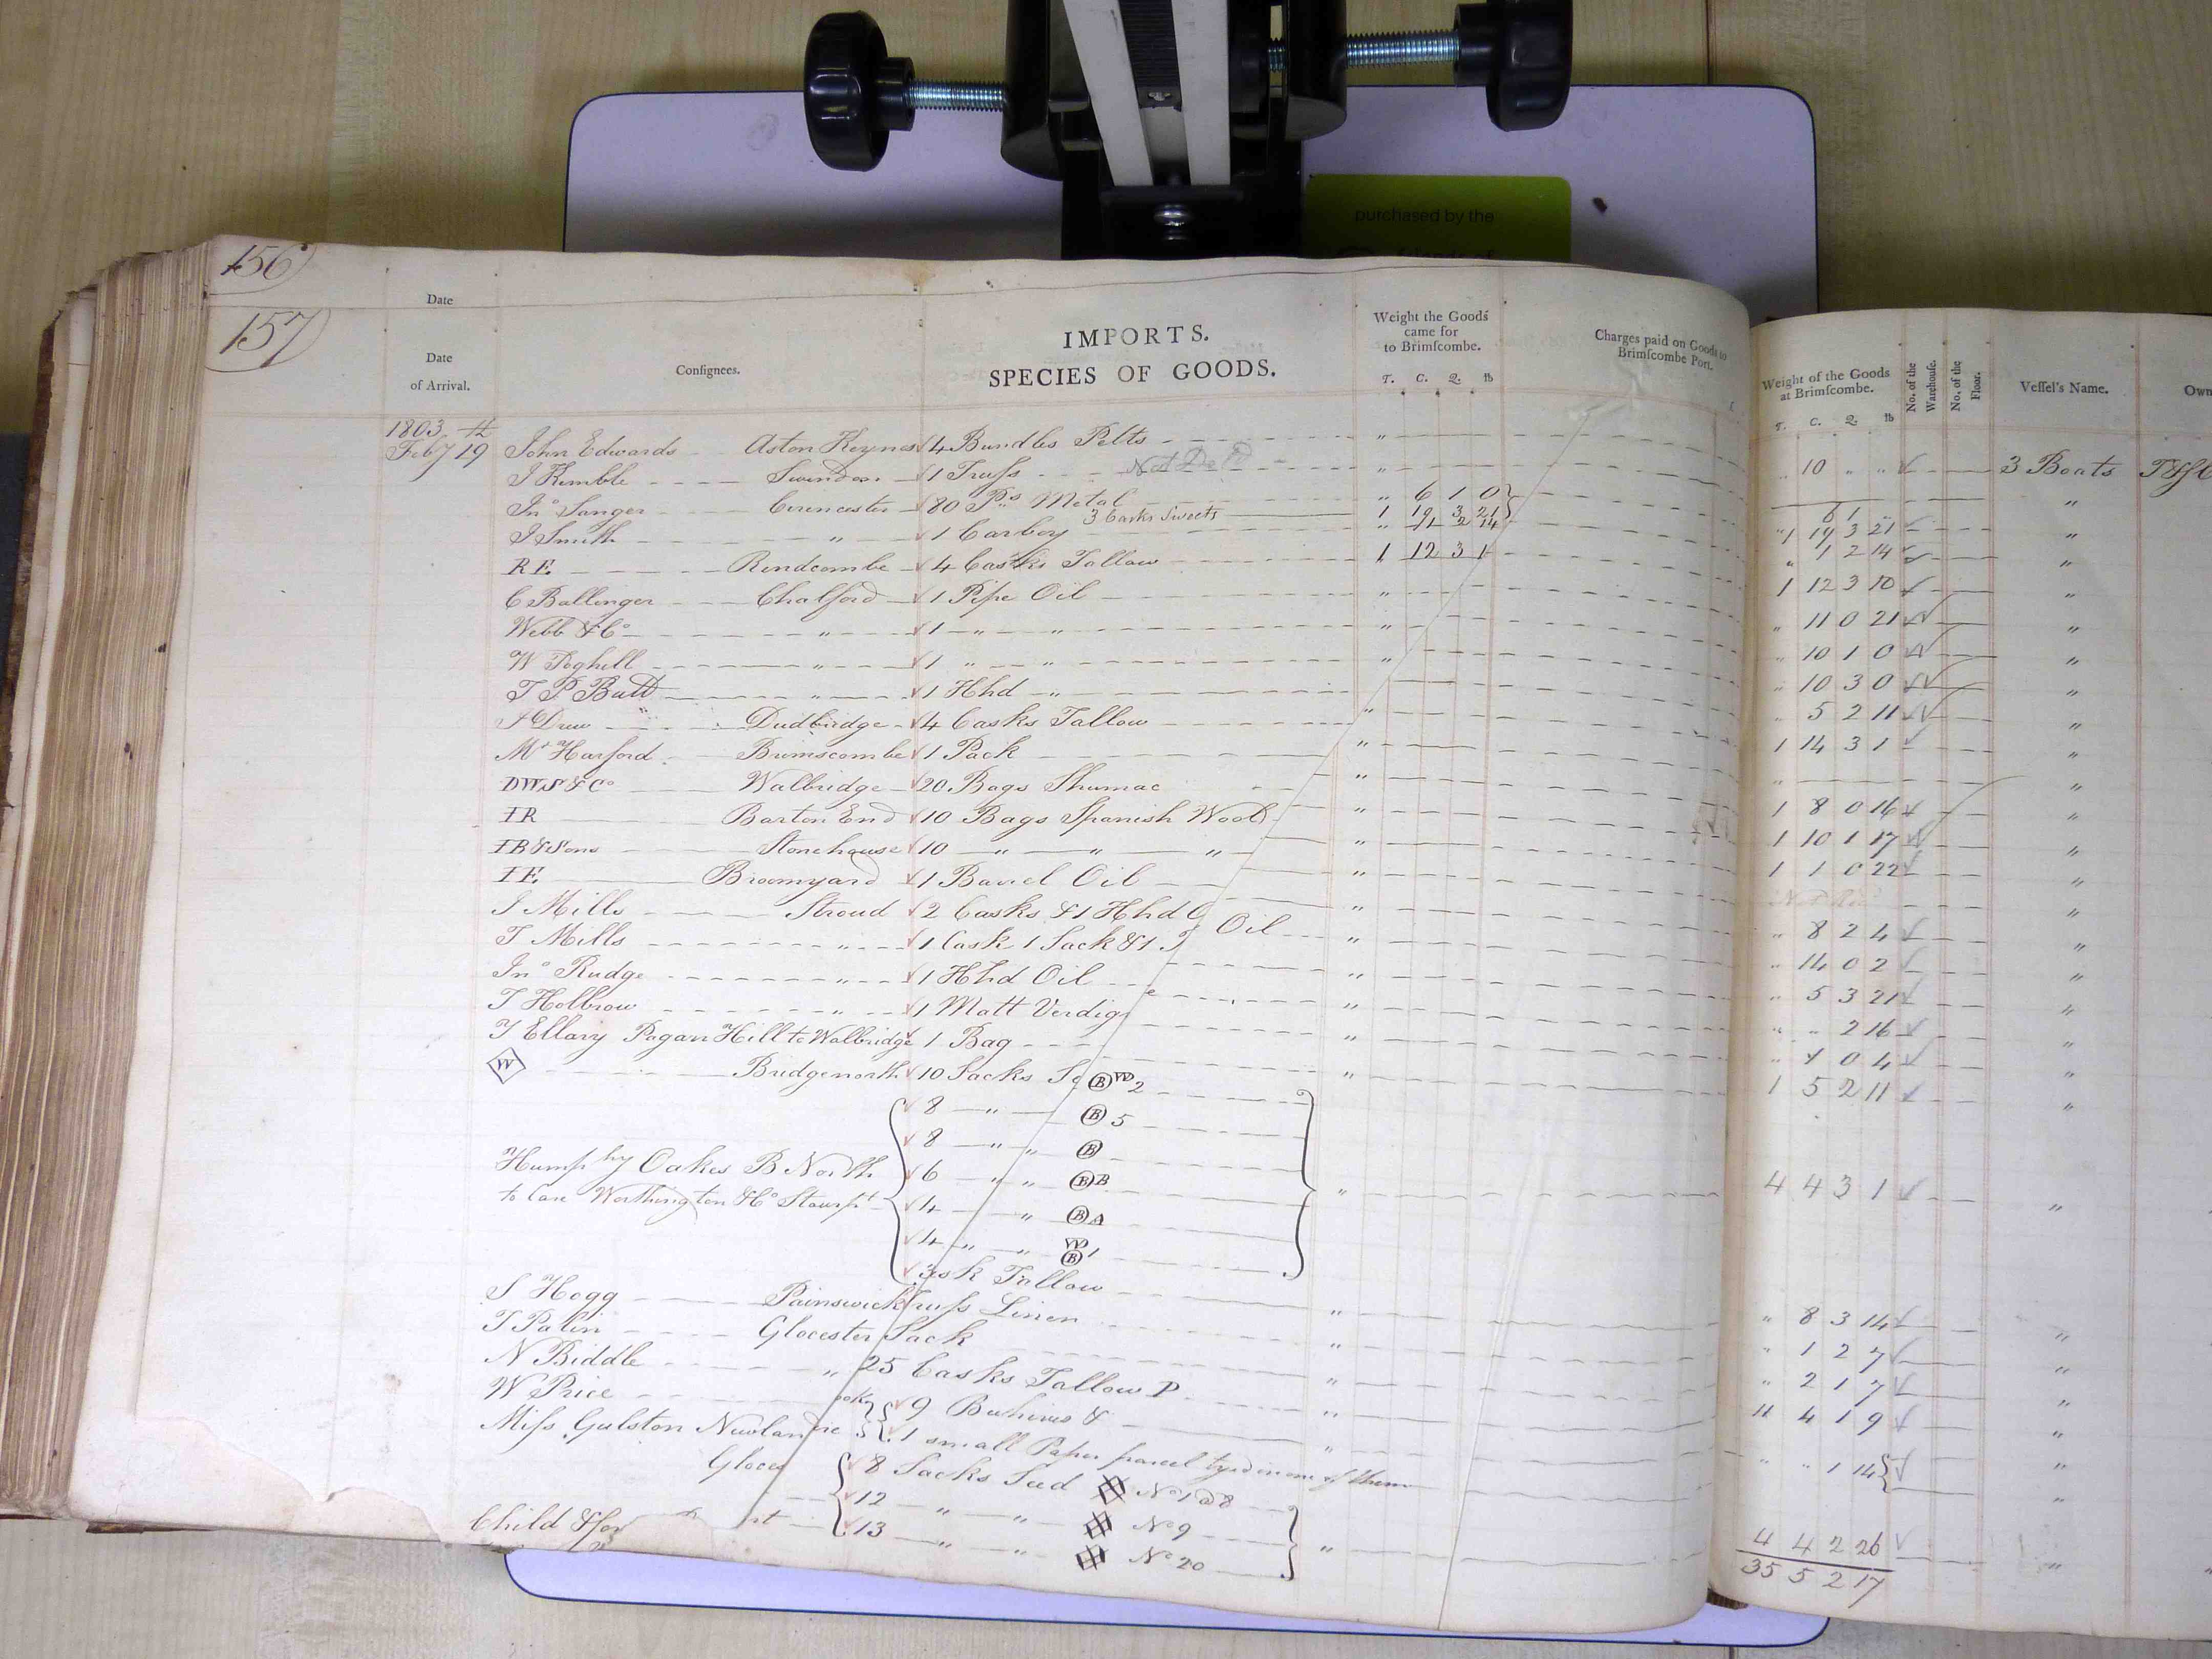 purchased by the
156
Date
157
Date
of Arrival.
Consignees.
IMPORTS.
SPECIES OF GOODS.
Weight the Goods
came for
to Brimscombe.
T. C. Q. lb
Charges paid on Goods to
Brimscombe Port.
Weight of the Goods
at Brimscombe.
T. C. Q. lb
No. of the
Warehouse.
No. of the
Floor.
Vessel's Name.
Own
1803
Feby 19th John Edwards Aston Keynes 4 Bundles Pelts " 10 " " 3 Boats
I Kemble Swindon 1 Truss Not Del'd " "
Jno Sanger Cirencester 80 Ps Metal " 6 1 0 6 1
3 Casks Sweets 1 19 3 21 1 19 3 21 "
I Smith " 1 Carboy " 1 2 14 " 1 2 14 "
RE Rendcombe 4 Casks Tallow 1 12 3 1 1 12 3 10 "
C Ballinger Chalford 1 Pipe Oil " " 11 0 21 "
Webb & Co " 1 " " " " 10 1 0 "
W Toghill " 1 " " " " 10 3 0 "
T P Butt " 1 Hhd " " 5 2 11 "
I Drew Dudbridge 4 Casks Tallow " 1 14 3 1 "
Mr Harford Brimscombe 1 Pack " " "
DWS & Co Walbridge 20 Bags Shumac " 1 8 0 16 "
IR Barton End 10 Bags Spanish Wool " 1 10 1 17 "
IB & Sons Stonehouse 10 " " " " 1 1 0 22 "
IE Bromyard 1 Barrel Oil " "
S Mills Stroud 2 Casks & 1 Hhd Oil " " 8 2 4 "
T Mills " 1 Cask 1 Sack & 1 " " 14 0 2 "
Jno Rudge " 1 Hhd Oil " " 5 3 21 "
T Holbrow " 1 Matt Verdig " " " 2 16 "
T Ellary Pagan Hill to Walbridge 1 Bag " " 4 0 4 "
W Bridgenorth 10 Sacks " 1 5 2 11 "
B WD 2
8 " B 5
8 " " B
Humphy Oakes B North 6 " " B B
to Care Worthington & Co Stourpt 4 " B A " 4 4 3 1 "
4 " " W B 1
3
S Hogg Painswick ask Tallow " " 8 3 14 "
T Palin Glocester russ Linen " " 1 2 7 "
N Biddle " Sack " " 2 1 7 "
W Price 25 Casks Tallow P " 11 4 1 9 "
Miss Gulston Newland 9 Beehives & " " " 1 14 "
1 small Paper parcel tyed in one of them
Gloces 8 Sacks Seed No 1 @ 8
12 " " No 9
Child & 13 " " No 20 " 4 4 2 26 "
35 5 2 17